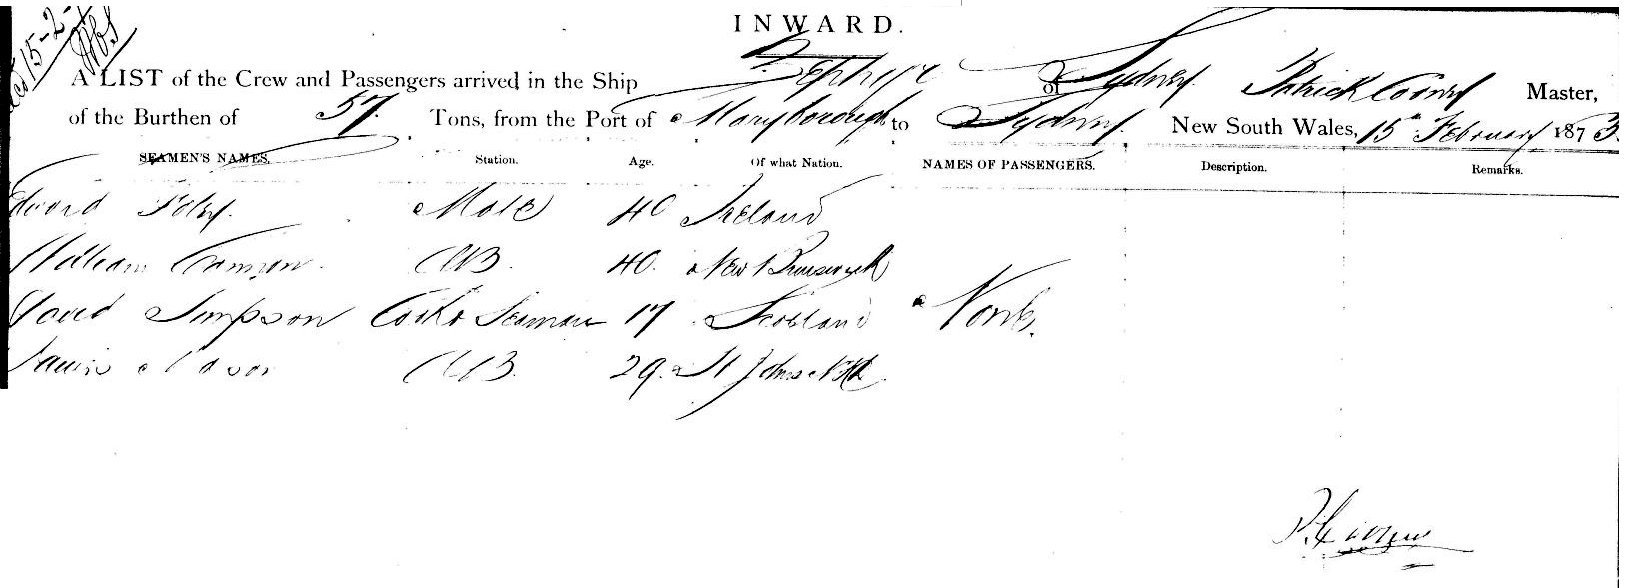 15-2
INWARD.
A LIST of the Crew and Passengers arrived in the Ship Zephyr of Sydney Patrick Master,
of the Burthen of 57 Tons, from the Port of Maryborough to Sydney New South Wales, 15th February 1873.
SEAMEN'S NAMES. Station. Age. Of what Nation. NAMES OF PASSENGERS. Description. Remarks.
Edward Foley Mate 40 Ireland
William AB 40. New Brunswick
David Simpson Cook & Seaman 17 Scotland None
AB 29. St Johns